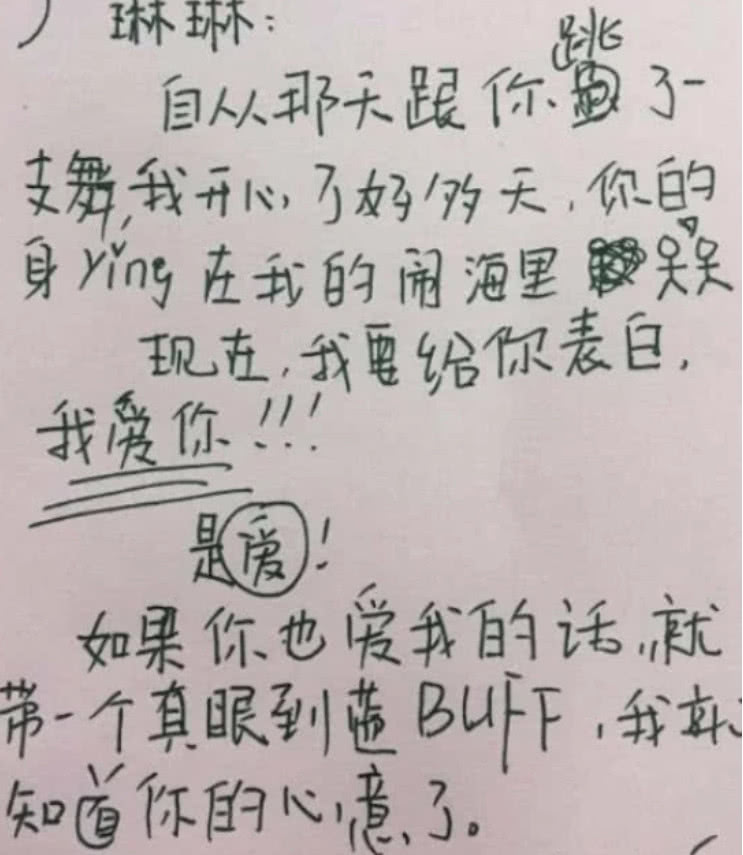 琳琳：
自从那天跟你跳了一
支舞，我开心了好多天，你的
身yǐng在我的闹海里
现在，我要给你表白，
我爱你！！！
是爱！
如果你也爱我的话，就
带一个真眼到蓝BUFF，我就
知道你的心意了。